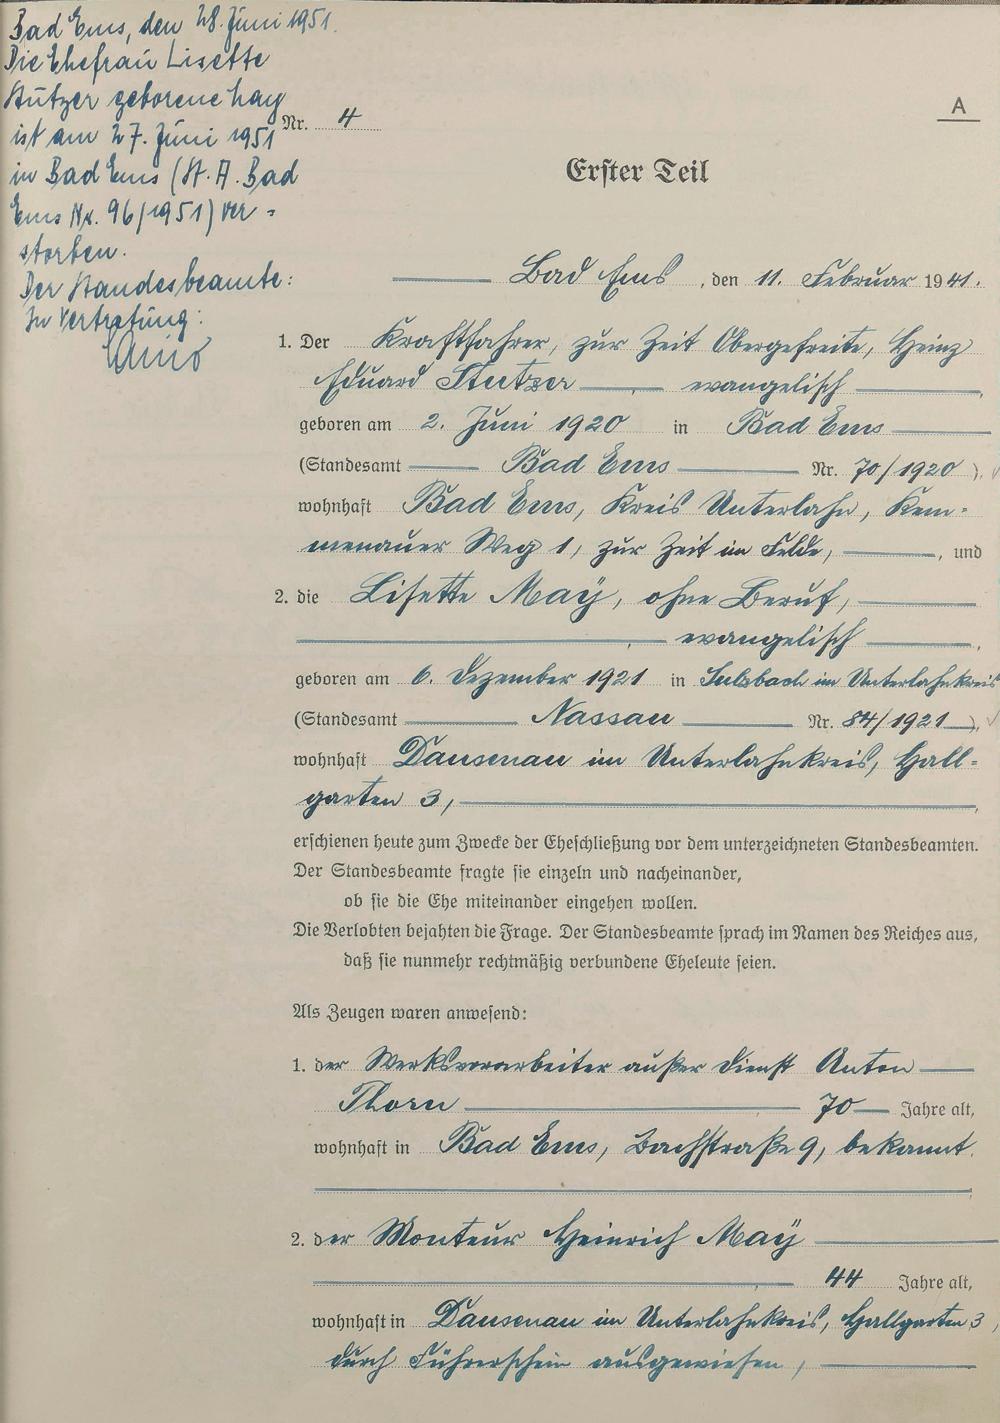 Bad Ems, den 28. Juni 1951.
Die Ehefrau Lisette
Stutzer geborene May
ist am 27. Juni 1951
in Bad Ems (St. A. Bad
Ems Nr. 96/1951) ver-
storben.
Der Standesbeamte:
In Vertretung:
A
Nr. 4
Erster Teil
Bad Ems, den 11. Februar 1941.
1. Der Kraftfahrer, zur Zeit Obergefreite, Heinz
Eduard Stutzer evangelisch
geboren am 2. Juni 1920 in Bad Ems
(Standesamt Bad Ems Nr. 70/1920)
wohnhaft Bad Ems, Kreis Unterlahn, Kem-
menauer Weg 1, zur Zeit im Felde, und
2. die Lisette Maÿ, ohne Beruf,
evangelisch
geboren am 6. Dezember 1921 in Sulzbach im Unterlahnkreis
(Standesamt Nassau Nr. 84/1921)
wohnhaft Dausenau im Unterlahnkreis, Hall-
garten 3,
erschienen heute zum Zwecke der Eheschließung vor dem unterzeichneten Standesbeamten.
Der Standesbeamte fragte sie einzeln und nacheinander,
ob sie die Ehe miteinander eingehen wollen.
Die Verlobten bejahten die Frage. Der Standesbeamte sprach im Namen des Reiches aus,
daß sie nunmehr rechtmäßig verbundene Eheleute seien.
Als Zeugen waren anwesend:
1. der Werksvorarbeiter außer Dienst Anton
Thorn 70 Jahre alt,
wohnhaft in Bad Ems, Bachstraße 9, bekannt.
2. der Monteur Heinrich Maÿ
44 Jahre alt,
wohnhaft in Dausenau im Unterlahnkreis, Hallgarten 3,
durch Führerschein ausgewiesen,